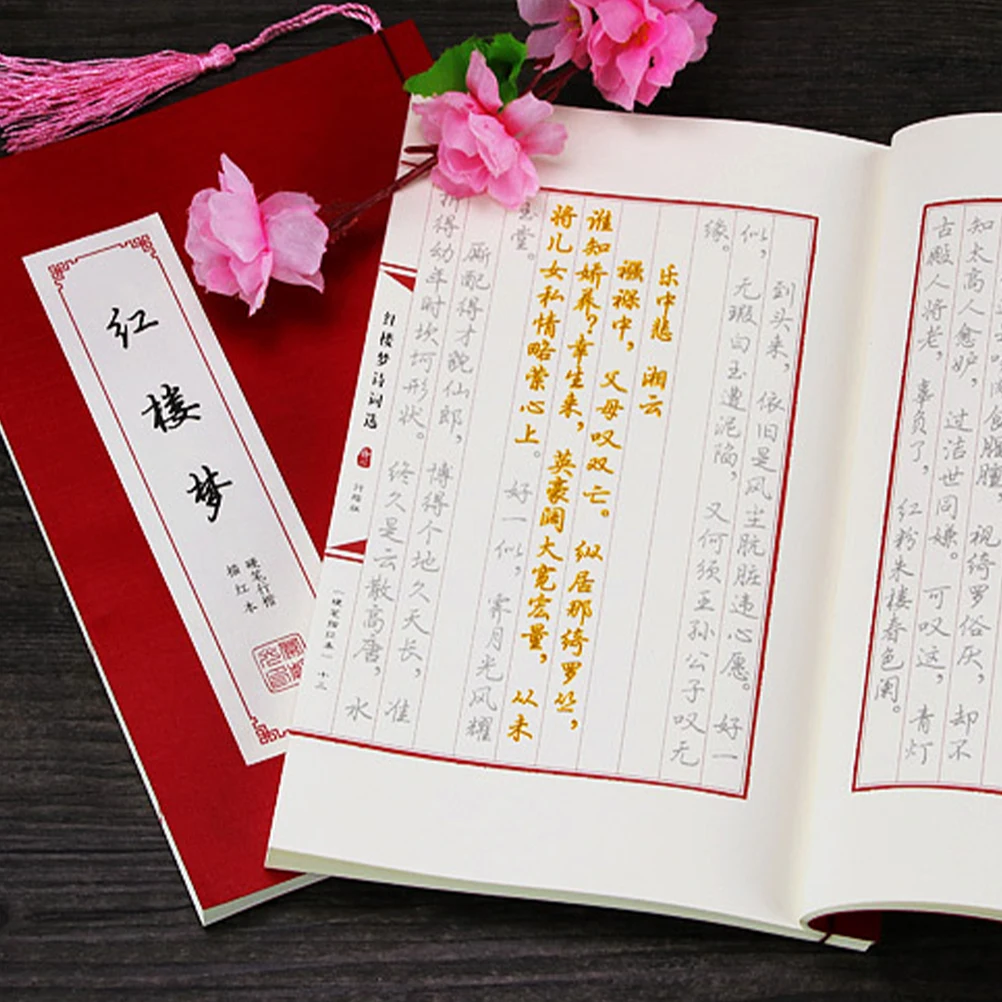 红楼梦
硬笔行楷
描红本
食腥膻，视绮罗俗厌，却不
知太高人愈妒，过洁世同嫌。可叹这，青灯
古殿人将老，辜负了，红粉朱楼春色阑。
到头来，依旧是风尘肮脏违心愿。好一
似，无瑕白玉遭泥陷，又何须王孙公子叹无
缘。
乐中悲 湘云
襁褓中，父母叹双亡。纵居那绮罗丛，
谁知娇养？幸生来，英豪阔大宽宏量，从未
将儿女私情略萦心上。好一似，霁月光风耀
玉堂。
厮配得才貌仙郎，博得个地久天长，准
折得幼年时坎坷形状。终久是云散高唐，水
红楼梦诗词选
行楷版
（硬笔描红本）
十三